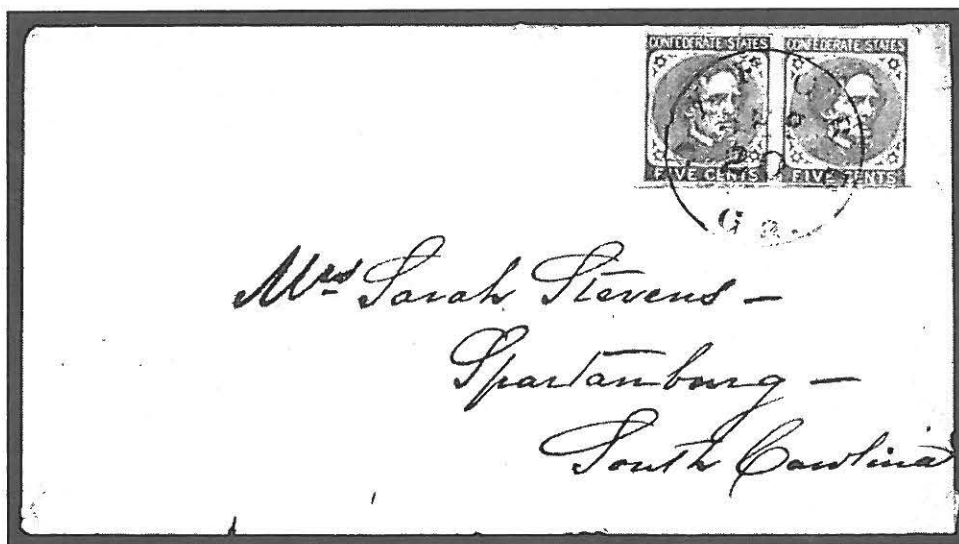 CONFEDERATE STATES CONFEDERATE STATES
FIVE CENTS FIVE CENTS
20
Ga.
Mrs Sarah Stevens –
Spartanburg –
South Carolina